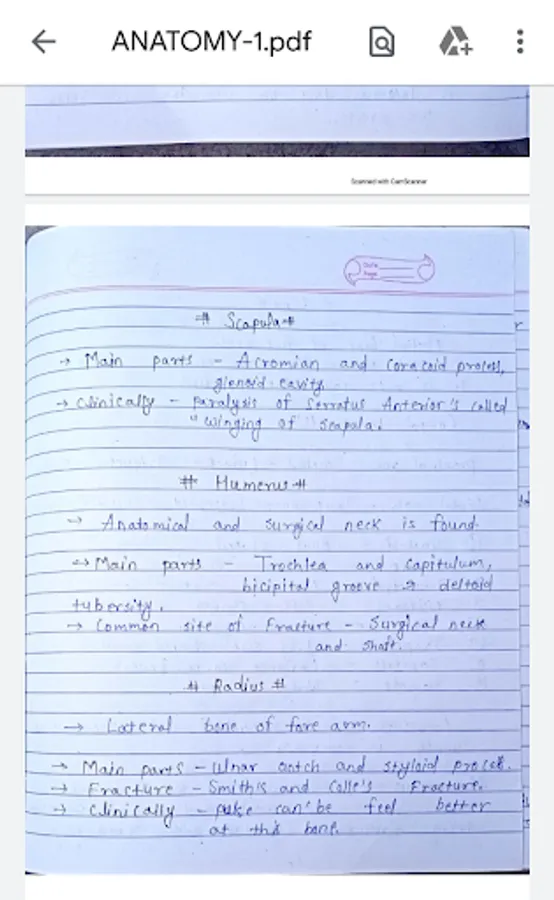 ANATOMY-1.pdf
Scanned with CamScanner
Date
Page
# Scapula #
→ Main parts - Acromian and coracoid process,
glenoid cavity
→ Clinically - paralysis of Serratus Anterior is called
"winging of scapula.
# Humerus #
→ Anatomical and surgical neck is found.
→ Main parts - Trochlea and capitulum,
bicipital groove & deltoid
tubersity.
→ Common site of Fracture - Surgical neck
and shaft.
# Radius #
→ Lateral bone of fore arm.
→ Main parts - Ulnar notch and styloid process.
→ Fracture - Smith's and Colle's Fracture.
→ Clinically - pulse can be feel better
at this bone.